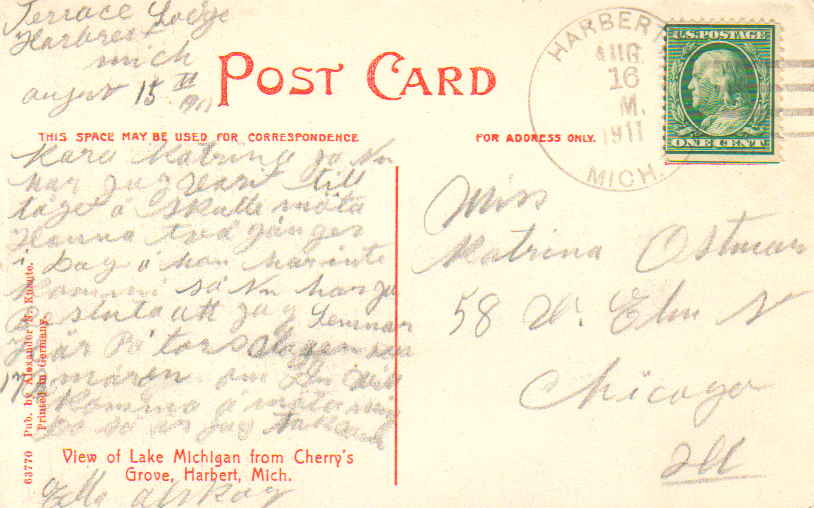 Terrace Lodge
Harbert
Mich
august 15 1911
POST CARD
THIS SPACE MAY BE USED FOR CORRESPONDENCE
FOR ADDRESS ONLY.
HARBERT
AUG
16
M.
1911
MICH.
U.S. POSTAGE
ONE CENT
Kära Katrina ja nu
har jag varit till
tåget å skulle möta
Hanna två gånger
i dag å hon har inte
kommi så nu har ja
besluta att jag lemnar
här
maren om du vill
komma å möta mig
så är jag
Ella
Miss
Katrina Ostman
58 W. Elm St
Chicago
Ill
63770 Pub. by Alexander N. Knaute.
Printed in Germany.
View of Lake Michigan from Cherry's
Grove, Harbert, Mich.